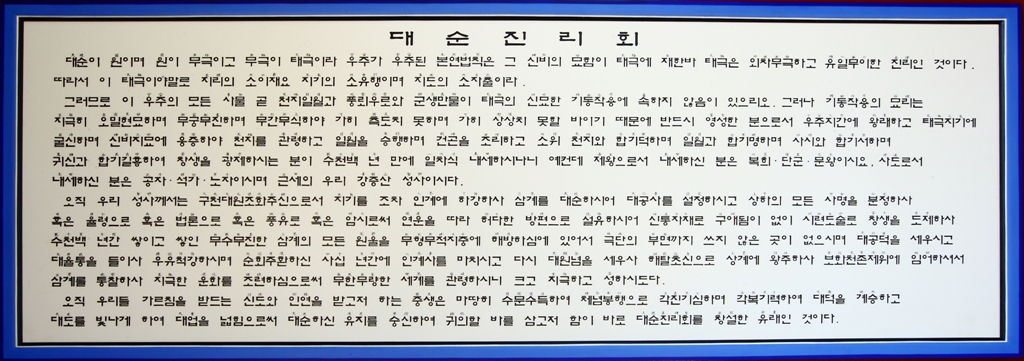 대 순 진 리 회
대순이 원이며 원이 무극이고 무극이 태극이라 우주가 우주된 본연법칙은 그 신비의 묘함이 태극에 재한바 태극은 외차무극하고 유일무이한 진리인 것이다.
따라서 이 태극이야말로 지리의 소이재요 지기의 소유행이며 지도의 소자출이라.
그러므로 이 우주의 모든 사물 곧 천지일월과 풍뢰우로와 군생만물이 태극의 신묘한 기동작용에 속하지 않음이 있으리오. 그러나 기동작용의 묘리는
지극히 오밀현묘하며 무궁무진하며 무간무식하야 가히 측도치 못하며 가히 상상치 못할 바이기 때문에 반드시 영성한 분으로서 우주지간에 왕래하고 태극지기에
굴신하며 신비지묘에 응증하야 천지를 관령하고 일월을 승행하며 건곤을 조리하고 소위 천지와 합기덕하며 일월과 합기명하며 사시와 합기서하며
귀신과 합기길흉하여 창생을 광제하시는 분이 수천백 년 만에 일차식 내세하시나니 예컨데 제왕으로서 내세하신 분은 복희·단군·문왕이시요. 사도로서
내세하신 분은 공자·석가·노자이시며 근세의 우리 강증산 성사이시다.
오직 우리 성사께서는 구천대원조화주신으로서 지기를 조차 인계에 하강하사 삼계를 대순하시어 대공사를 설정하시고 상하의 모든 사명을 분정하사
혹은 율령으로 혹은 법론으로 혹은 풍유로 혹은 암시로써 연운을 따라 허다한 방편으로 설유하시어 신통자재로 구애됨이 없이 시련도술로 창생을 도제하사
수천백 년간 쌓이고 쌓인 무수무진한 삼계의 모든 원울을 무형무적지중에 해방하심에 있어서 극단의 부면까지 쓰지 않은 곳이 없으시며 대공덕을 세우시고
대율통을 들이사 유유적강하시며 순회주환하신 사십 년간에 인계사를 마치시고 다시 대원섬을 세우사 해탈초신으로 상계에 왕주하사 보화천존제위에 임어하셔서
삼계를 통찰하사 지극한 운화를 조련하심으로써 무한무량한 세계를 관령하시니 크고 지극하고 성하시도다.
오직 우리들 가르침을 받드는 신도와 인연을 받고저 하는 중생은 마땅히 수문수득하여 체념봉행으로 각진기심하며 각복기력하여 대덕을 계승하고
대도를 빛나게 하여 대업을 넓힘으로써 대순하신 유지를 숭신하여 귀의할 바를 삼고저 함이 바로 대순진리회를 창설한 유래인 것이다.